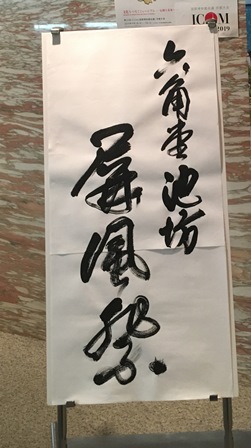 六角堂池坊
屏風祭
ICOM
2019